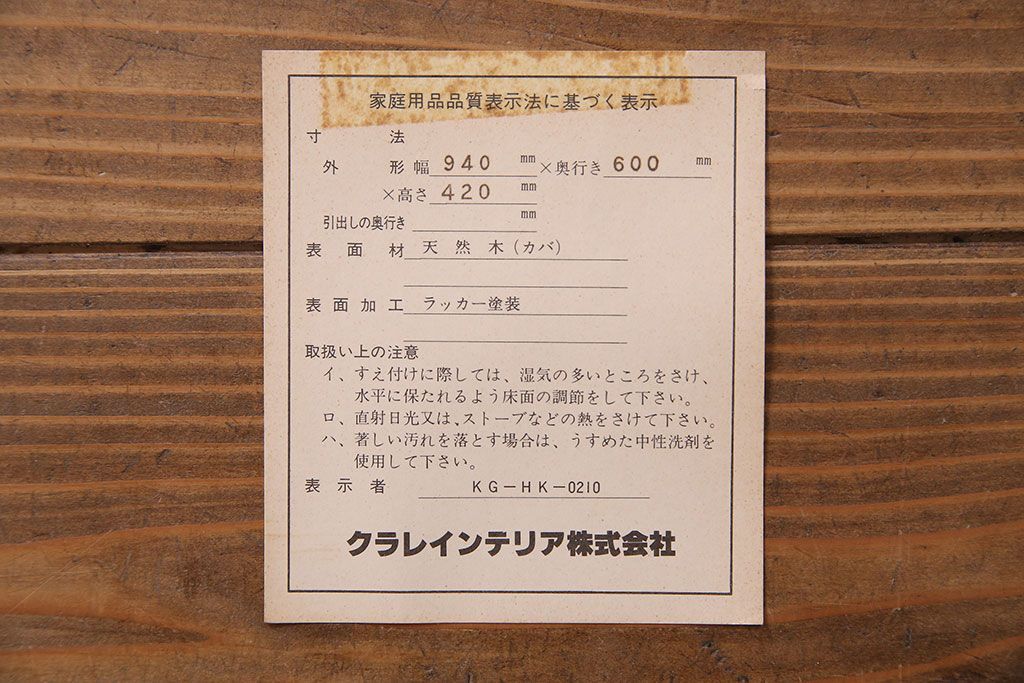 家庭用品品質表示法に基づく表示
寸法
外形 幅 940 mm ×奥行き 600 mm
×高さ 420 mm
引出しの奥行き mm
表面材 天然木(カバ)
表面加工 ラッカー塗装
取扱い上の注意
イ、すえ付けに際しては、湿気の多いところをさけ、
水平に保たれるよう床面の調節をして下さい。
ロ、直射日光又は、ストーブなどの熱をさけて下さい。
ハ、著しい汚れを落とす場合は、うすめた中性洗剤を
使用して下さい。
表示者 KG-HK-0210
クラレインテリア株式会社